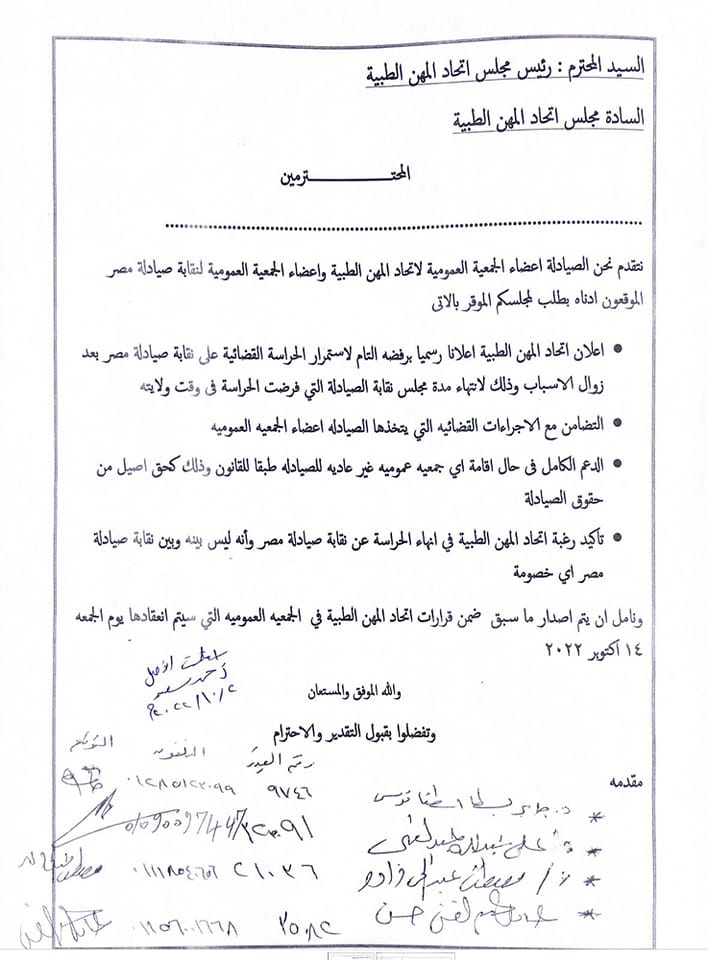 السيد المحترم : رئيس مجلس اتحاد المهن الطبية
السادة مجلس اتحاد المهن الطبية
المحتـــــــــــــــرمين
نتقدم نحن الصيادلة اعضاء الجمعية العمومية لاتحاد المهن الطبية واعضاء الجمعية العمومية لنقابة صيادلة مصر
الموقعون ادناه بطلب لمجلسكم الموقر بالاتى
• اعلان اتحاد المهن الطبية اعلانا رسميا برفضه التام لاستمرار الحراسة القضائية على نقابة صيادلة مصر بعد
زوال الاسباب وذلك لانتهاء مدة مجلس نقابة الصيادلة التي فرضت الحراسة فى وقت ولايته
• التضامن مع الاجراءات القضائيه التي يتخذها الصيادله اعضاء الجمعيه العموميه
• الدعم الكامل فى حال اقامة اي جمعيه عموميه غير عاديه للصيادله طبقا للقانون وذلك كحق اصيل من
حقوق الصيادلة
• تاكيد رغبة اتحاد المهن الطبية في انهاء الحراسة عن نقابة صيادلة مصر وأنه ليس بينه وبين نقابة صيادلة
مصر اي خصومة
ونامل ان يتم اصدار ما سبق ضمن قرارات اتحاد المهن الطبية في الجمعيه العموميه التي سيتم انعقادها يوم الجمعه
١٤ اكتوبر ٢٠٢٢
استلمت الأصل
أحمد سعيد
٢٠٢٢/١٠/٢م
والله الموفق والمستعان
وتفضلوا بقبول التقدير والاحترام
مقدمه
رقم القيد التليفون التوقيع
د. جابر ٩٧٤٦
على عبدالله 01090097447
د/ مصطفى عبد الحى ٢١٠٣٦
عادل حسن ٢٥٠٨٢